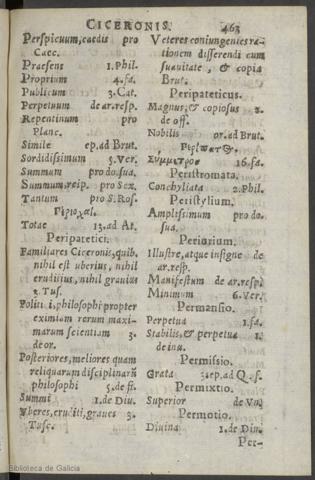 CICERONIS. 463
Perspicuum, cædis pro
Caec.
Praesens 1. Phil.
Proprium 4. fa.
Publicum 3. Cat.
Perpetuum de ar. resp.
Repentinum pro
Planc.
Simile ep. ad Brut.
Sordidissimum 5. Ver.
Summum pro do. sua.
Summum, resp. pro Sex.
Tantum pro S. Ros.
Περιοχαὶ.
Totae 13. ad At.
Peripatetici.
Familiares Ciceronis, quib.
nihil est uberius, nihil
eruditius, nihil grauius
2. Tus.
Politi i, philosophi propter
eximiam rerum maxi-
marum scientiam 3.
de or.
Posteriores, meliores quam
reliquarum disciplinarũ
philosophi 5. de fi.
Summi 1. de Diu.
Vberes, eruditi, graues 3.
Tusc.
Veteres coniungentes ra-
tionem disserendi cum
suauitate, & copia
Brut.
Peripateticus.
Magnus, & copiosus 2.
de off.
Nobilis or. ad Brut.
Περίπατ
Σύμμετρος 16. fa.
Peristromata.
Conchyliata 2. Phil.
Peristylium.
Amplissimum pro do.
sua.
Periurium.
Illustre, atque insigne de
ar. resp.
Manifestum de ar. resp.
Minimum 6. Ver.
Permansio.
Perpetua 1. fa.
Stabilis, & perpetua 1.
de inu.
Permissio.
Grata 3. ep. ad Q. f.
Permixtio.
Superior de Vn.
Permotio.
Diuina 1. de Diu.
Per-
Biblioteca de Galicia